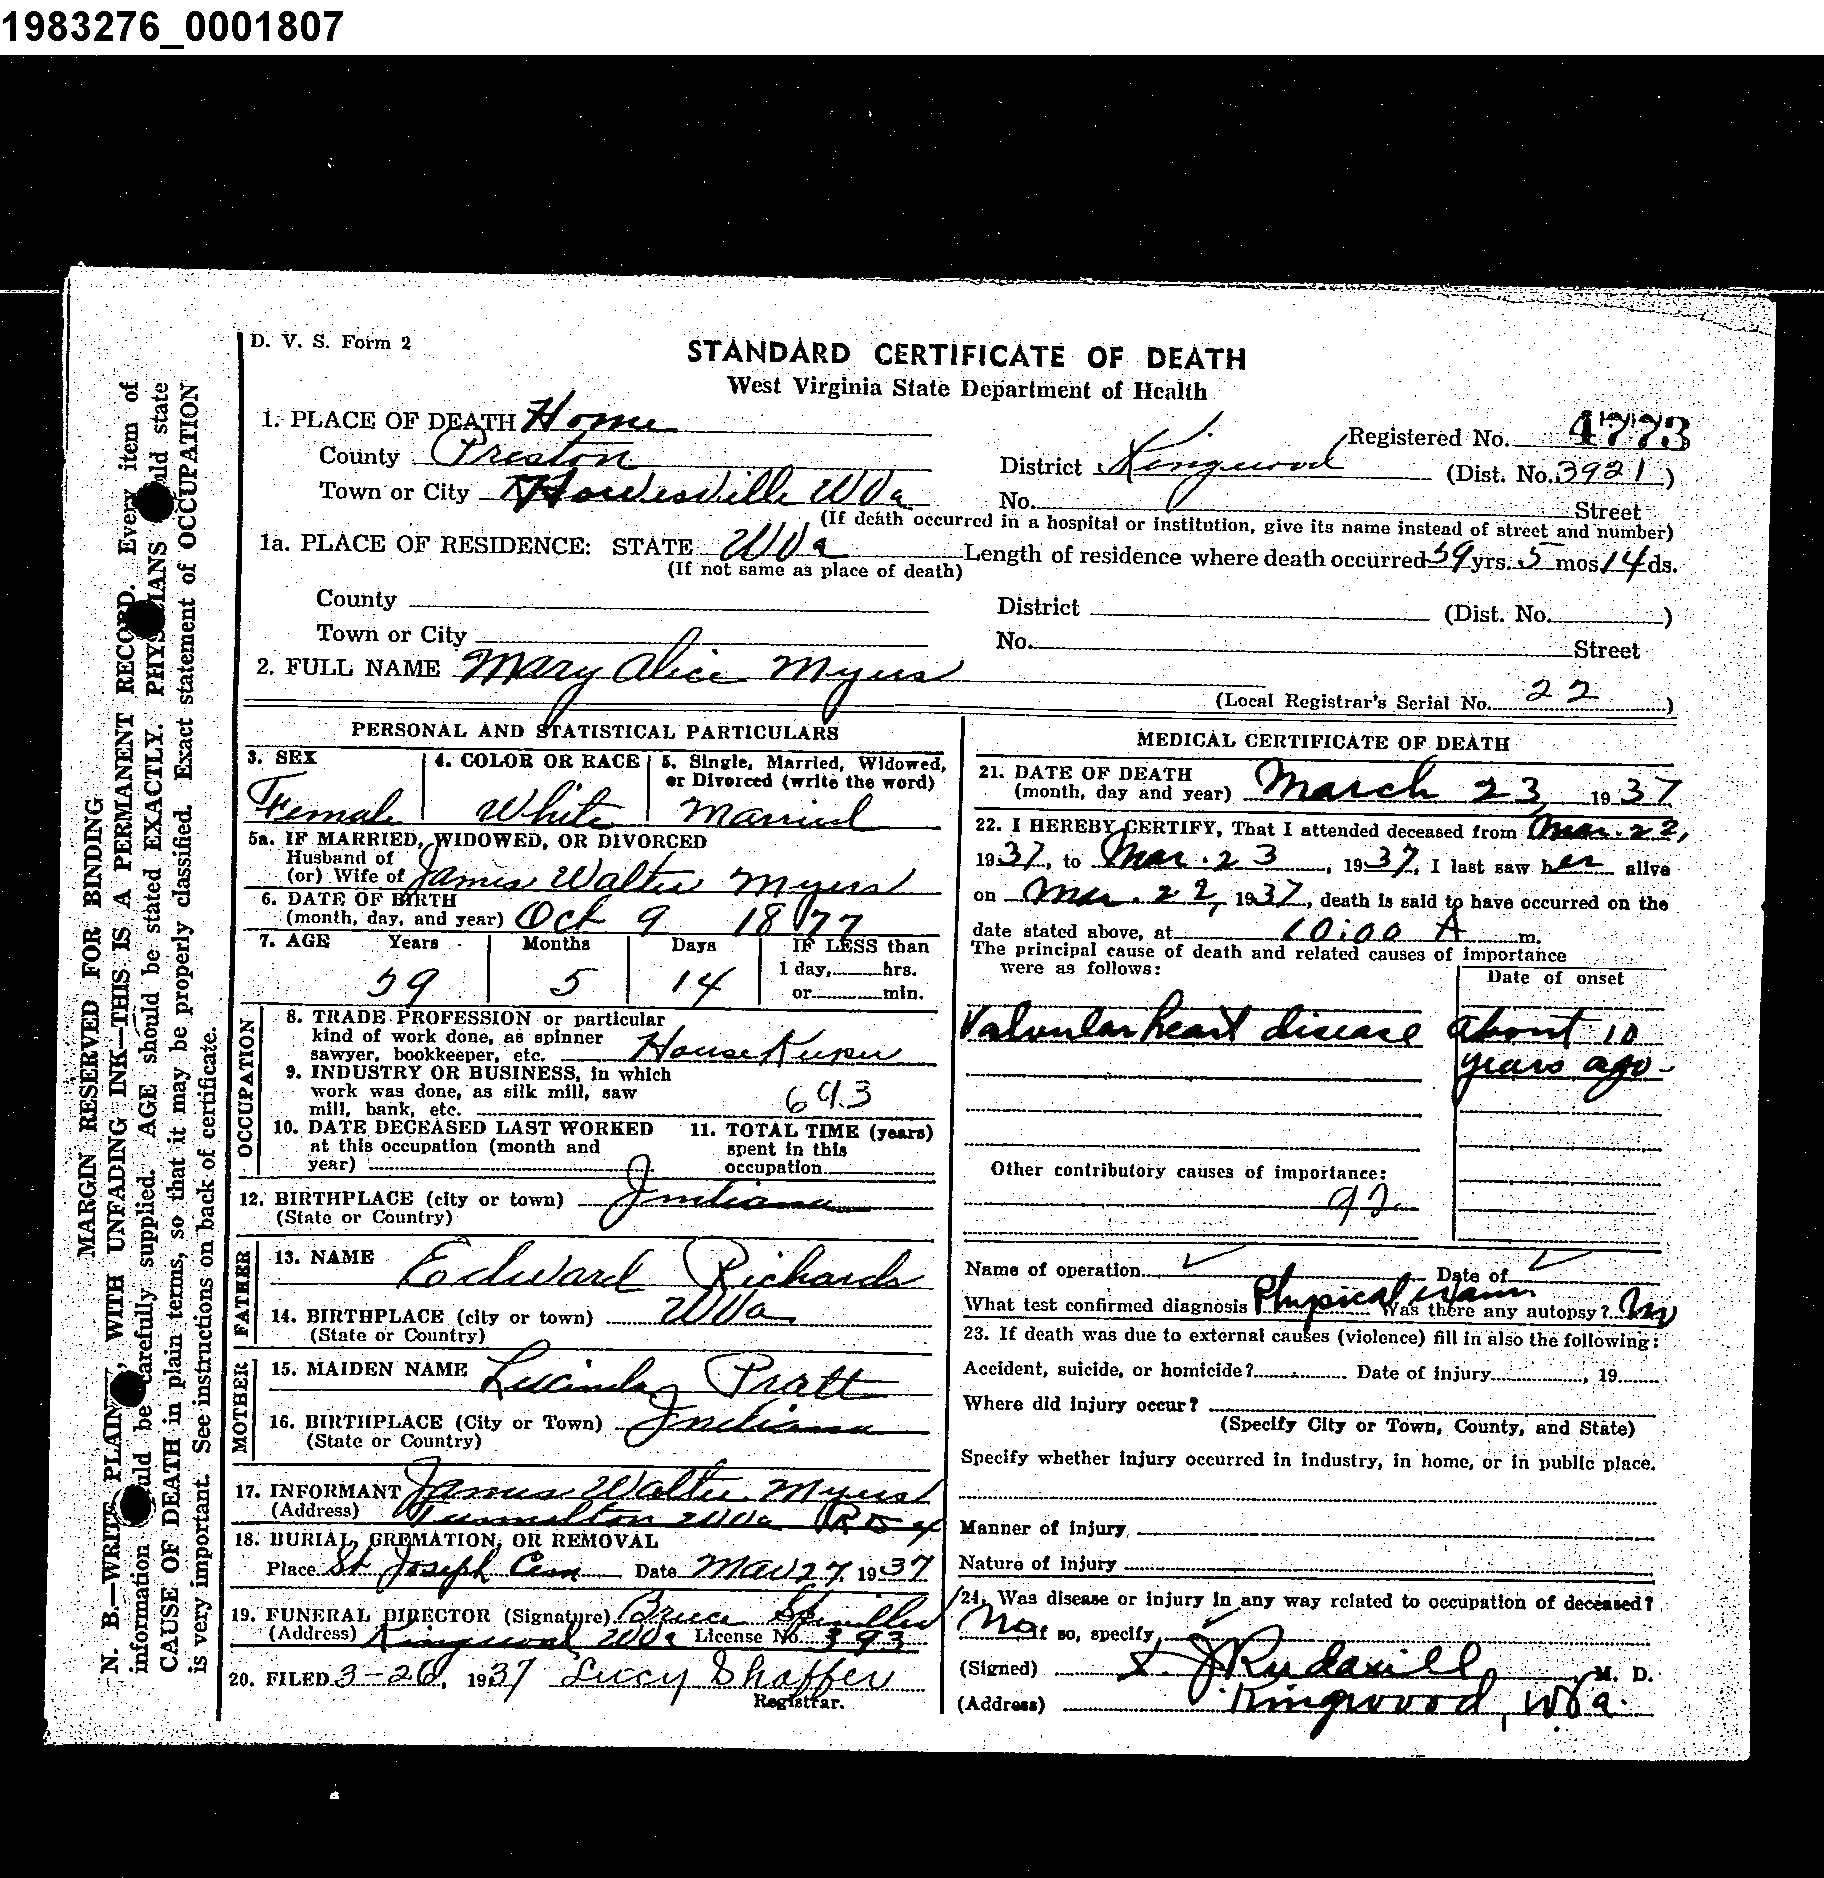 1983276_0001807
D. V. S. Form 2
STANDARD CERTIFICATE OF DEATH
West Virginia State Department of Health
1. PLACE OF DEATH Home
Registered No. 4773
County Preston
District Kingwood (Dist. No. 3921)
Town or City Howesville WVa
No. Street
(If death occurred in a hospital or institution, give its name instead of street and number)
1a. PLACE OF RESIDENCE: STATE WVa Length of residence where death occurred 59 yrs. 5 mos 14 ds.
(If not same as place of death)
County District (Dist. No. )
Town or City No. Street
2. FULL NAME Mary Alice Myers
(Local Registrar's Serial No. 22 )
PERSONAL AND STATISTICAL PARTICULARS
3. SEX 4. COLOR OR RACE 5. Single, Married, Widowed, or Divorced (write the word)
Female White Married
5a. IF MARRIED, WIDOWED, OR DIVORCED
Husband of
(or) Wife of James Walter Myers
6. DATE OF BIRTH
(month, day, and year) Oct 9 1877
7. AGE Years Months Days IF LESS than
1 day, hrs.
59 5 14 or min.
OCCUPATION
8. TRADE PROFESSION or particular
kind of work done, as spinner
sawyer, bookkeeper, etc. House Keeper
9. INDUSTRY OR BUSINESS, in which
work was done, as silk mill, saw
mill, bank, etc. 693
10. DATE DECEASED LAST WORKED
at this occupation (month and
year)
11. TOTAL TIME (years)
spent in this
occupation
12. BIRTHPLACE (city or town) Indiana
(State or Country)
FATHER
13. NAME Edward Richards
14. BIRTHPLACE (city or town) WVa
(State or Country)
MOTHER
15. MAIDEN NAME Lucinda Pratt
16. BIRTHPLACE (City or Town) Indiana
(State or Country)
17. INFORMANT James Walter Myers
(Address) Tunnelton WVa
18. BURIAL, CREMATION, OR REMOVAL
Place St Joseph Cem Date Mar 27 1937
19. FUNERAL DIRECTOR (Signature) Bruce
(Address) Kingwood WVa License No. 393
20. FILED 3-26, 1937 Lucy Shaffer
Registrar.
MEDICAL CERTIFICATE OF DEATH
21. DATE OF DEATH
(month, day and year) March 23 1937
22. I HEREBY CERTIFY, That I attended deceased from Mar. 22,
1937, to Mar. 23, 1937, I last saw her alive
on Mar. 22, 1937, death is said to have occurred on the
date stated above, at 10:00 A m.
The principal cause of death and related causes of importance
were as follows:
Date of onset
Valvular heart disease About 10
years ago
Other contributory causes of importance:
92
Name of operation Date of
What test confirmed diagnosis Physical exam Was there any autopsy? No
23. If death was due to external causes (violence) fill in also the following:
Accident, suicide, or homicide? Date of injury , 19
Where did injury occur?
(Specify City or Town, County, and State)
Specify whether injury occurred in industry, in home, or in public place.
Manner of injury
Nature of injury
24. Was disease or injury in any way related to occupation of deceased?
No If so, specify
(Signed) Rudasill M. D.
(Address) Kingwood, WVa.
MARGIN RESERVED FOR BINDING
N. B.—WRITE PLAIN , WITH UNFADING INK—THIS IS A PERMANENT RECORD. Every item of
information should be carefully supplied. AGE should be stated EXACTLY. PHYSICIANS should state
CAUSE OF DEATH in plain terms, so that it may be properly classified. Exact statement of OCCUPATION
is very important. See instructions on back of certificate.